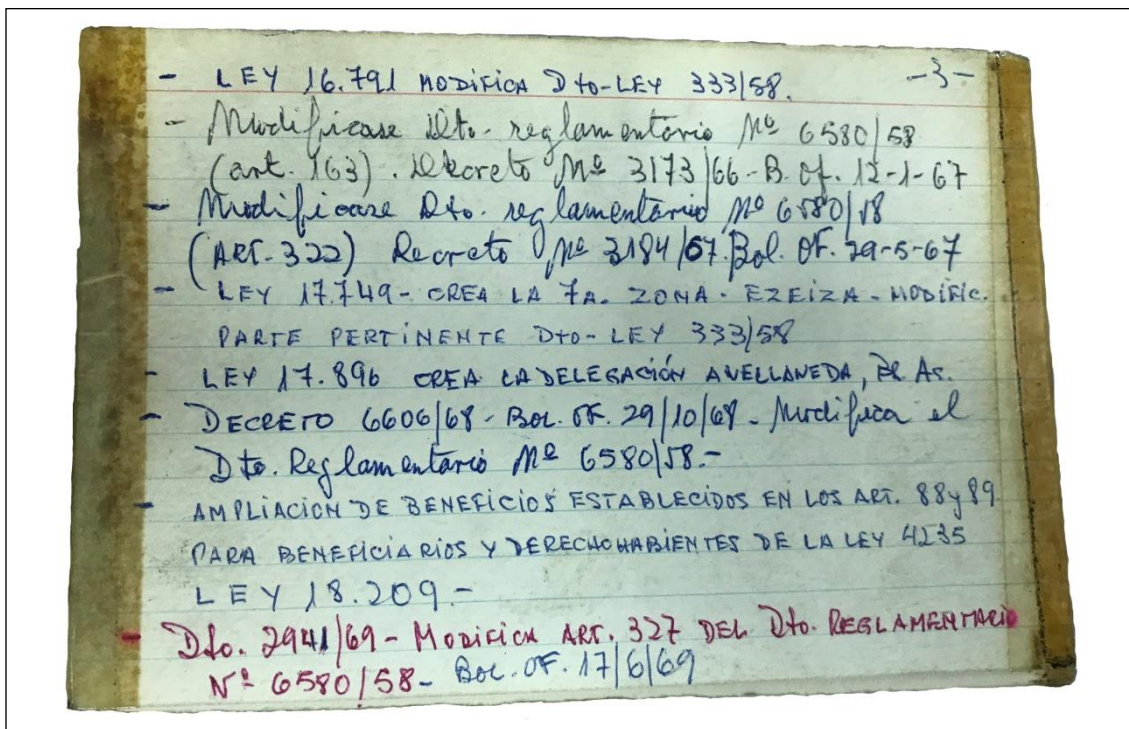 - LEY 16.791 MODIFICA Dto-LEY 333/58. -3-
- Modificase Dto. reglamentario Nº 6580/58
(art. 163). Decreto Nº 3173/66-B. Of. 12-1-67
- Modificase Dto. reglamentario Nº 6580/58
(ART.-322) Decreto Nº 3184/67. Bol. OF. 29-5-67
- LEY 17.749- CREA LA 7A. ZONA - EZEIZA - MODIFIC.
PARTE PERTINENTE Dto-LEY 333/58
- LEY 17.896 CREA LA DELEGACIÓN AVELLANEDA, As.
- DECRETO 6606/68 - BOL. OF. 29/10/68 - Modifica el
Dto. Reglamentario Nº 6580/58.-
- AMPLIACION DE BENEFICIOS ESTABLECIDOS EN LOS ART. 88 y 89
PARA BENEFICIARIOS Y DERECHOHABIENTES DE LA LEY 4235
LEY 18.209.-
- Dto. 2941/69 - MODIFICA ART. 327 DEL Dto. REGLAMENTARIO
Nº 6580/58- BOL. OF. 17/6/69